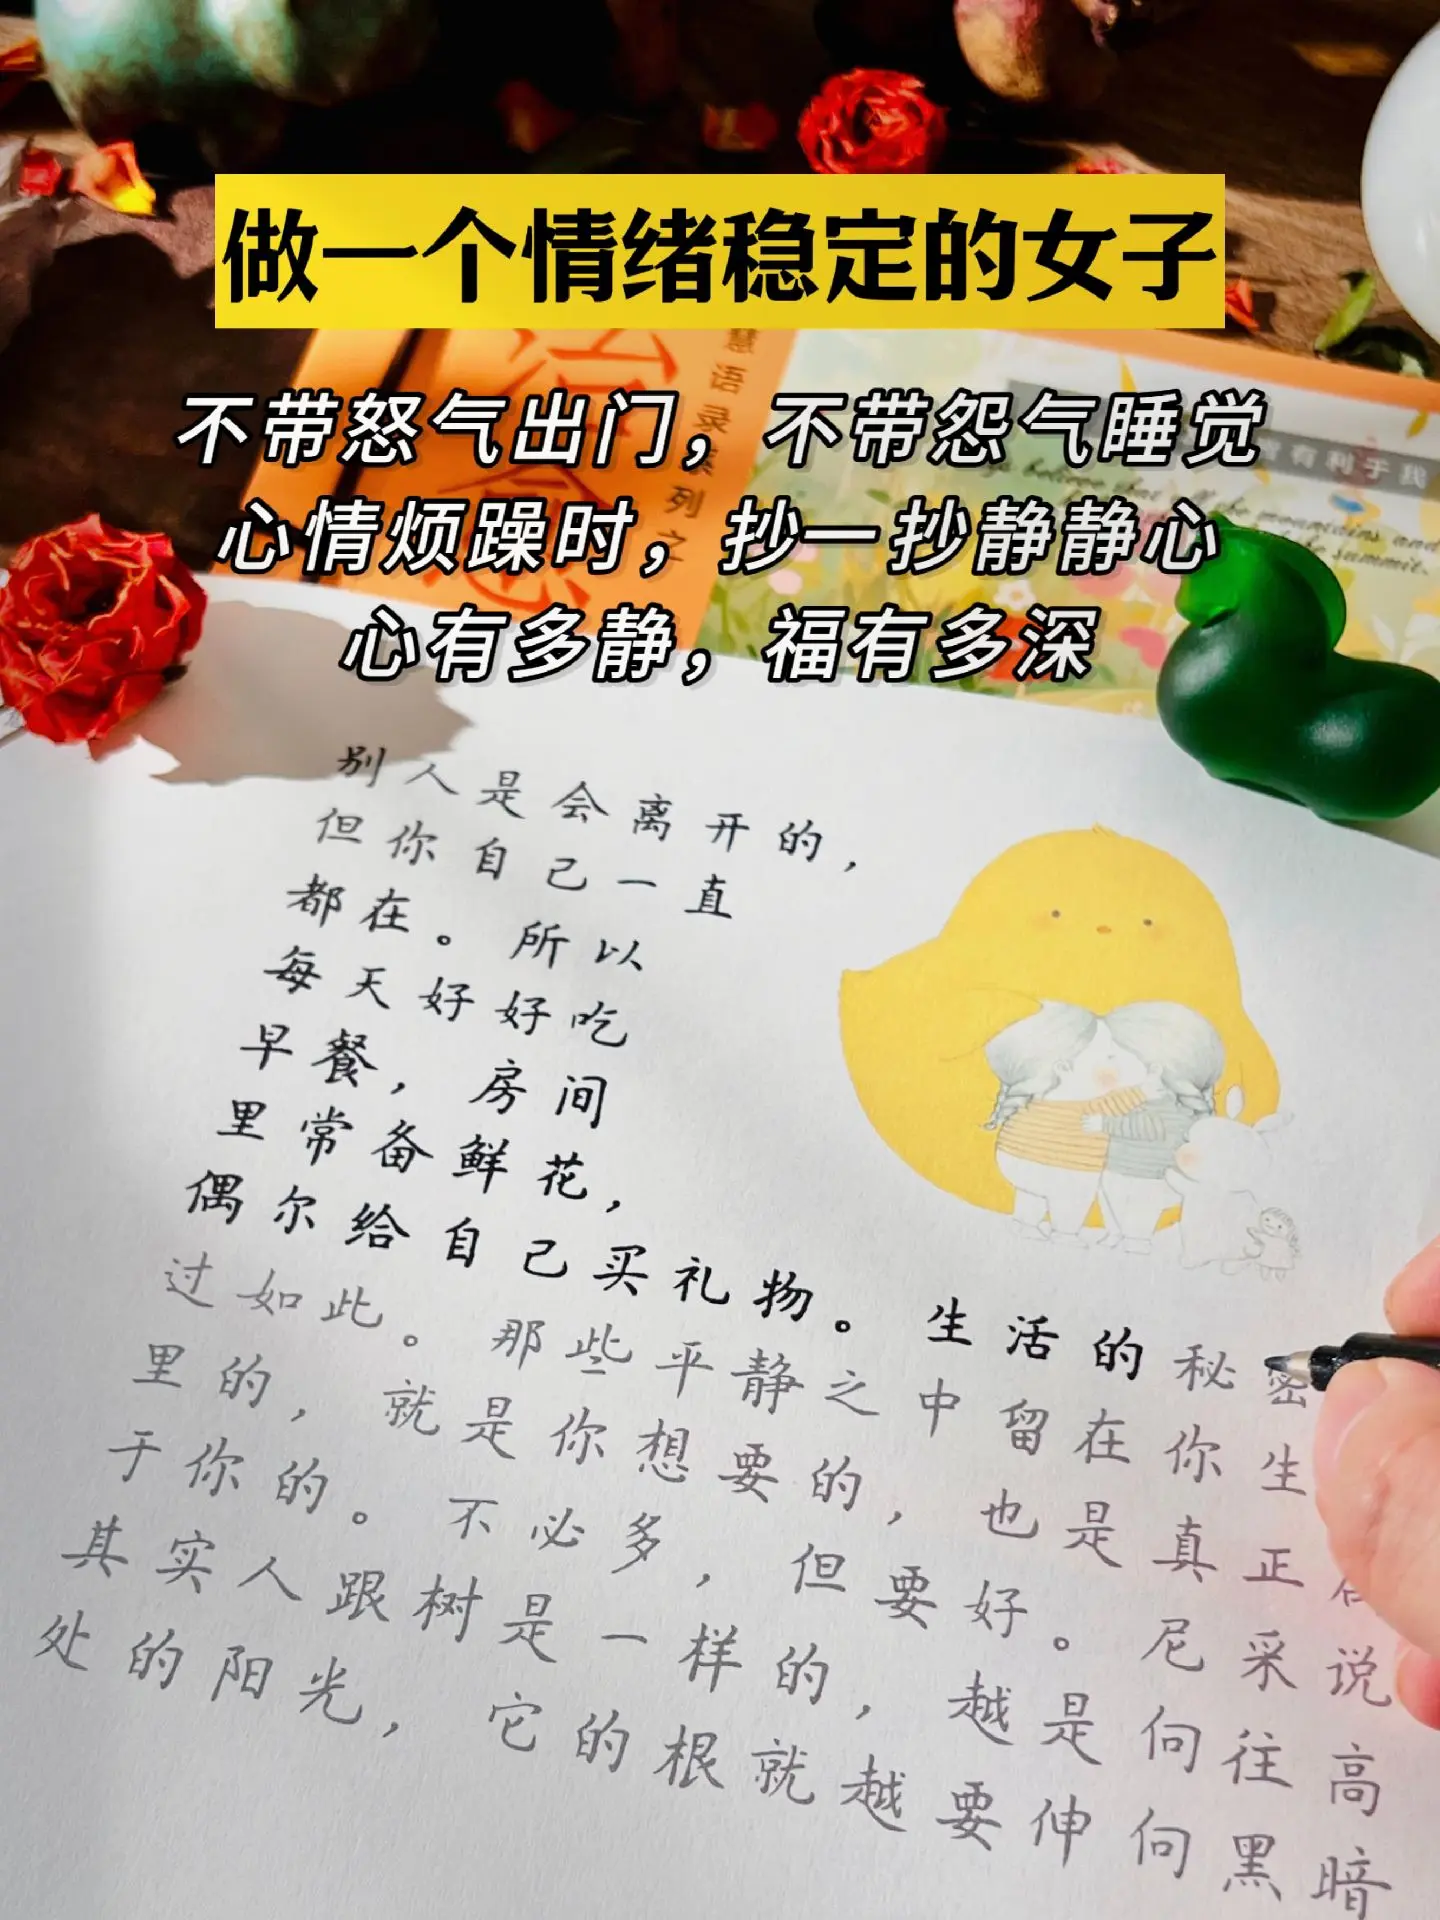 做一个情绪稳定的女子
慧语录系列之
曾有利于我
不带怒气出门，不带怨气睡觉
心情烦躁时，抄一抄静静心
心有多静，福有多深
别人是会离开的，
但你自己一直
都在。所以
每天好好吃
早餐，房间
里常备鲜花，
偶尔给自己买礼物。生活的秘密
过如此。那些平静之中留在你生
里的，就是你想要的，也是真正
于你的。不必多，但要好。尼采说
其实人跟树是一样的，越是向往高
处的阳光，它的根就越要伸向黑暗